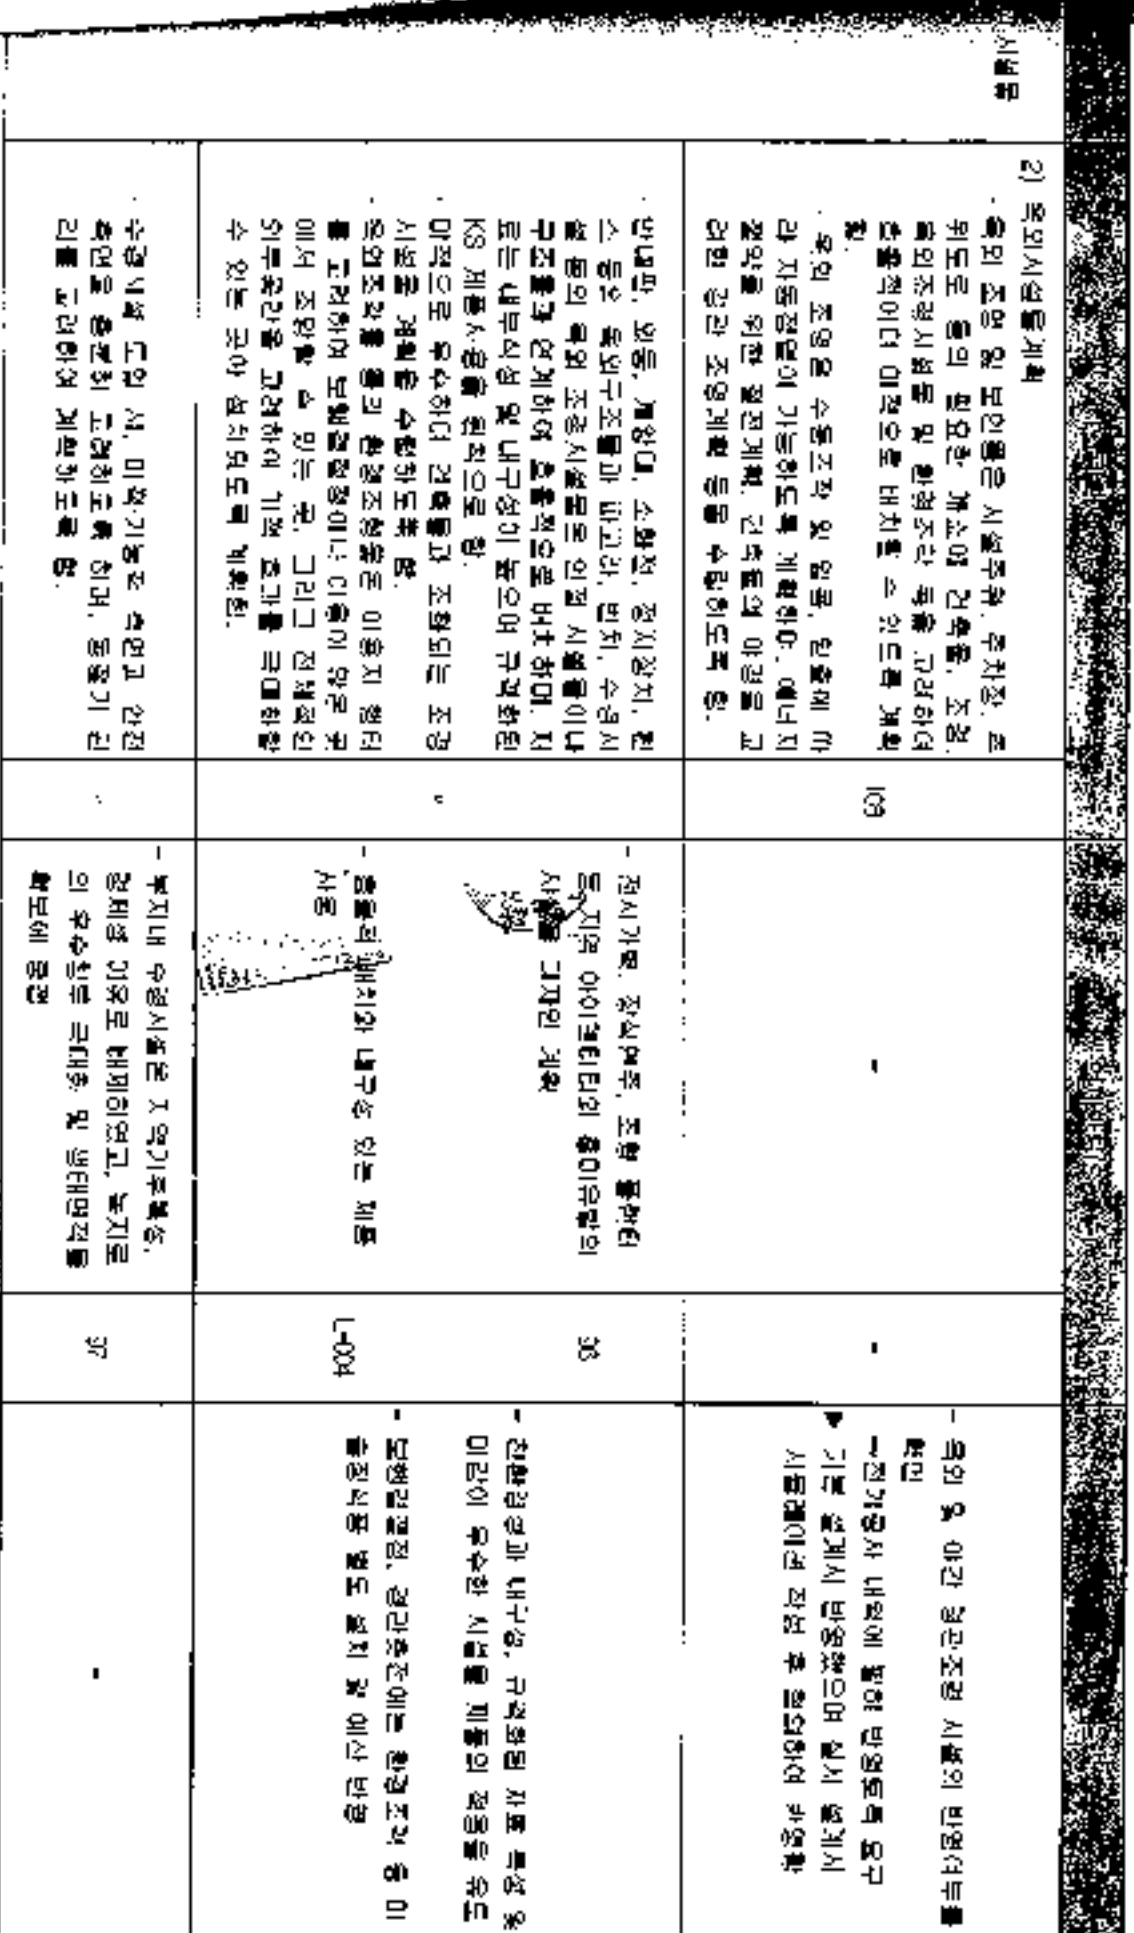 시설물
2) 옥외시설물계획
· 옥외 조형 및 보안등은 시설주위, 주차장, 산
위도로 등의 필요한 개소에 건축물, 조경,
옥외조경시설물 및 환경조각 등을 고려하여
효율적이며 미적으로 배치될 수 있도록 계획
함.
· 옥외 조명은 수동조작 및 일몰, 일출에 따
라 자동점멸이 가능하도록 계획하며, 에너지
절약을 위한 절전계획, 건축물의 야경을 고
려한 경관 조명계획 등을 수립하도록 함.
109
-
-
- 옥외 및 야간 경관조명 시설의 반영여부를
확인
▼ 기본 설계시 반영했으며 실시 설계시
시뮬레이션 작업 후 검토하여 반영함
· 안내판, 외등, 게양대, 소화전,
스 등의 옥외구조물과 파고라, 벤치, 수경시
설 등의 옥외 조경시설물은 인접 시설물이나
구조물과 연계하여 효율적으로 배치하며, 자
재는 내부식성 및 내구성이 높으며 규격화된
KS 제품사용을 원칙으로 함.
· 미적으로 우수하며 건축물과 조화되는 조경
시설물 계획을 수립하도록 함.
· 옥외조각물 등의 환경조형물은 이용자 행태
를 고려하여 보행결절점이나 이용이 많은 곳
에서 조망할 수 있는 곳, 그리고 전체적인
외부공간을 고려하여 기적 효과를 극대화할
수 있는 곳에 설치되도록 계획함.
〃
- 전시가벽, 장식열주, 조형 플랜터
등 지역 아이덴티티의 흥미유발의
시설물 디자인 계획
- 효율적 배치와 내구성 있는 제품
사용
96
L-004
- 친환경성과 내구성, 규격화된 자료 특성 및
미관이 우수한 시설물 제품의 적용을 유도
- 보행결절점, 경관축점에는 환경조각 등 미
술장식품 별도 설치 및 예산 반영
· 수경시설 도입 시, 미학기능적 측면과 안전
측면을 충분히 고려하도록 하며, 동절기 관
리를 고려하여 계획하도록 함.
〃
- 부지내 수경시설은 지역기후특성,
경제성 이유로 배제하였고, 녹지로
의 우수침투 극대화 및 생태면적률
확보에 중점
97
-